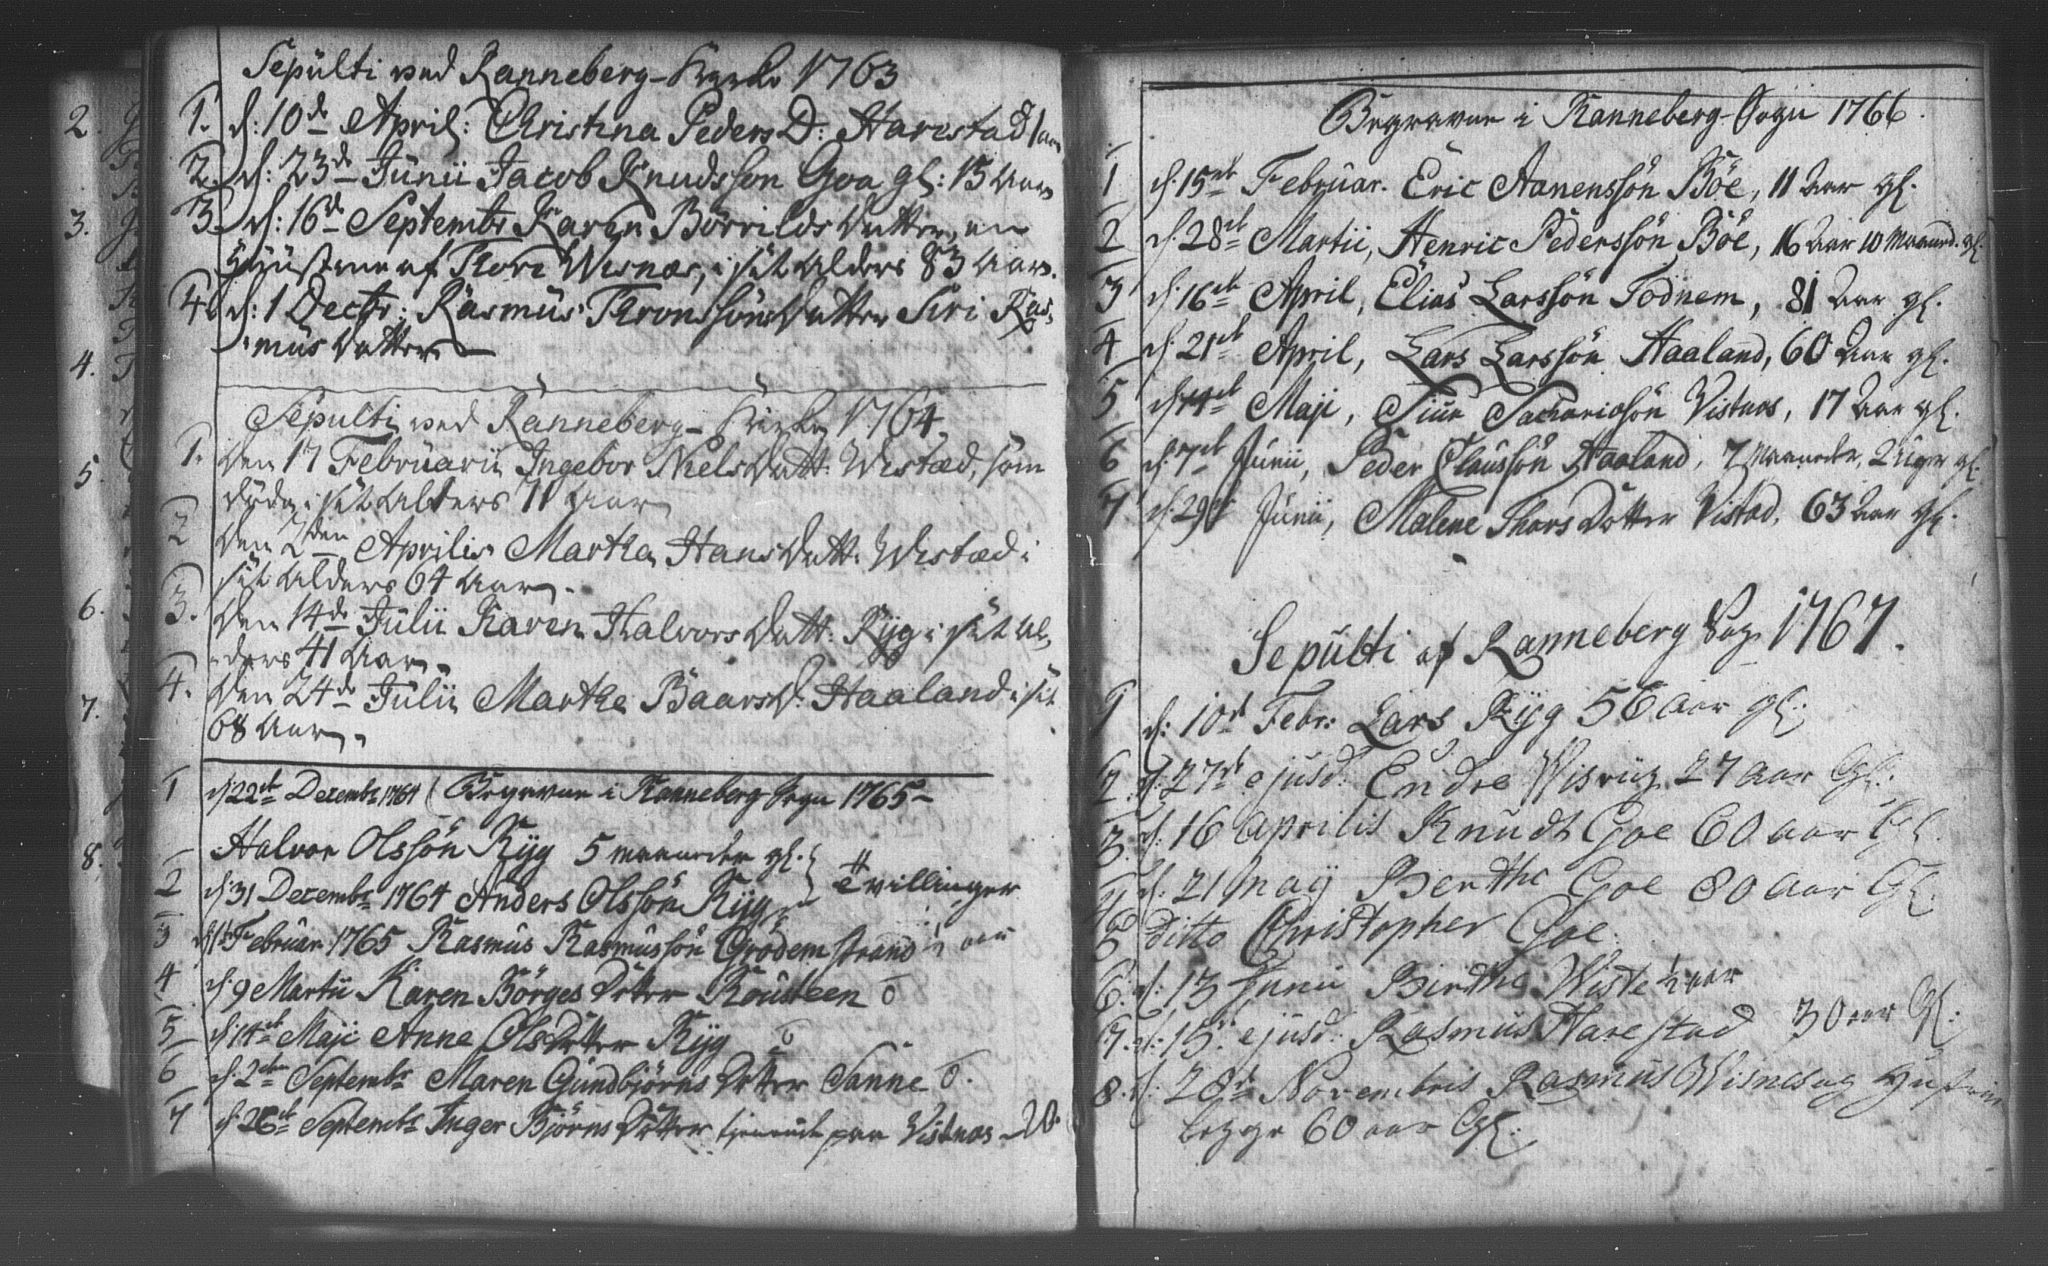 Sepulti ved Ranneberg-Kirke 1763
1. d: 10de April: Christina Peders D: Harestad 1 aar
2. d: 23de Junii Jacob Knudsson Goa gl: 15 Aar
3. d: 16de Septembr Karen Börrilds Datter, en
Huustrue af Tore Wisnæs, i sit Alders 83 Aar.
4. d: 1 Decbr: Rasmus Thronssöns Datter Siri Ras-
mus Datter
Sepulti ved Ranneberg-Kirke 1764
1. Den 17 Februarii Ingebor Niels Datt: Wistæd, som
döde i sit Alders 71 Aar
2 Den 2den Aprilis Martha Hans Datt: Wistæd i
sit Alders 64 Aar.
3. Den 14de Julii Karen Halvors Datt: Ryg i sit Al-
ders 41 Aar.
4. Den 24de Julii Martha Baars D: Haaland i sit
68 Aar.
1 d 22de Decembr 1764 Begravne i Ranneberg Sogn 1765
Halvor Olssön Ryg 5 maaneder gl.
2 d: 31 Decembr 1764 Anders Olssön Ryg tvillinger
3 Februar 1765 Rasmus Rasmussön Grödem strand
4 d: 9 Martii Karen Börges Dotter
5 d: 14de Maji Anne Ols Dotter Ryg
6 d: 2den Septembr Maren Gundbjörns Dotter Sanne
7 d: 26de Septembr Inger Björns Dotter tjenende paa Vistnæs 20.
Begravne i Ranneberg-Sogn 1766.
1 d. 15de Februar. Eric Aanenssön Böe, 11 Aar gl.
2 d. 28de Martii, Henric Pederssön Böe, 16 Aar 10 Maaned. gl.
3 d. 16de April, Elias Larssön Todnem, 81 Aar gl.
4 d. 21de April, Lars Larssön Haaland, 60 Aar gl.
5 d. 14de Maji, Vistnæs, 17 Aar gl.
6 d. 7de Junii, Peder Claussön Haaland, 7 Maaneder, 2 Uger gl.
7. d. 29de Junii, Malene Thors Dotter Vistad, 63 Aar gl.
Sepulti af Ranneberg Sog. 1767.
1 d: 10d Febr: Lars Ryg 56 Aar gl:
2. d: 27d ejusd: Endre 27 Aar Gl:
3. d: 16 Aprilis Knudt Goe 60 aar Gl.
4 d: 21 May Berthe Goe 80 Aar Gl.
5 Ditto Christopher Goe.
6. d: 13 Junii Birthe Wiste 1/2 aar
7. d: 15. ejusd: Rasmus Harestad 30 aar Gl:
8. d: 28d Novembris Rasmus og
begge 60 aar Gl:
2.
3.
4.
5.
6.
7.
8.